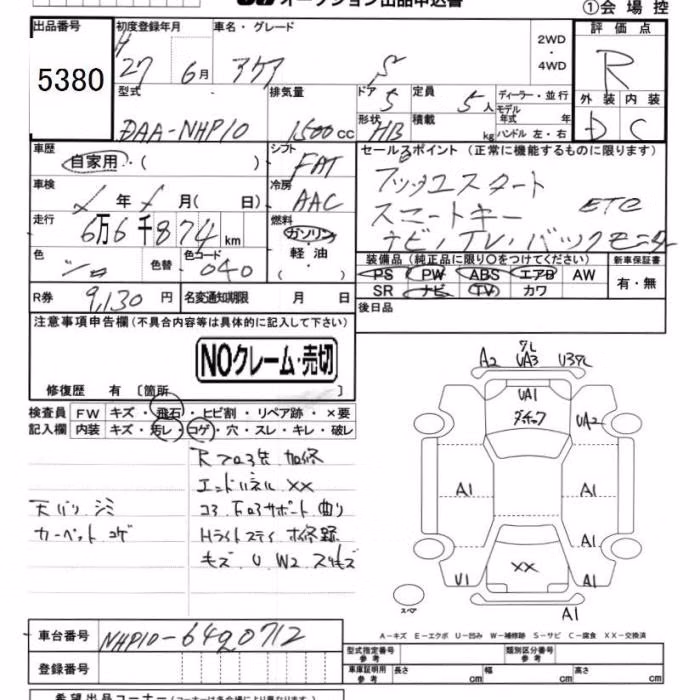 オークション出品申込書
①会場控
出品番号 初度登録年月 車名・グレード 2WD ・ 4WD 評価点
5380 H 27 6月 アクア S R
型式 排気量 ドア 5 定員 5人 ディーラー・並行 外装 内装
DAA-NHP10 1500cc 形状 HB 積載 kg モデル年式 年 ハンドル 左・右 D C
車歴 自家用・( ) シフト FAT セールスポイント (正常に機能するものに限ります)
車検 年 月( 日) 冷房 AAC プッシュスタート
走行 6万6千874km 燃料 ガソリン・軽油・( ) スマートキー ETC
ナビ・TV・バックモニター
色 シロ 色替 色コード 040 装備品 (純正品に限り○をつけてください) 新車保証書
PS PW ABS エアB AW 有・無
R券 9,130円 名変通知期限 月 日 SR ナビ TV カワ
後日品
注意事項申告欄(不具合内容等は具体的に記入して下さい)
NOクレーム・売切
修復歴 有 〔箇所 〕
検査員記入欄 FW キズ・飛石・ヒビ割・リペア跡・×要
内装 キズ・汚レ・コゲ・穴・スレ・キレ・破レ
エンドパネル XX
天バリ シミ コア右サポート曲り
カーペット コゲ Hライトステイ 補修跡
キズ U W2
A2 UA3
UA1
UA2
A1 A1
A1
XX
U1 A1
スペア A1
A-キズ E-エクボ U-凹み W-補修跡 S-サビ C-腐食 XX-交換済
車台番号 NHP10-6420712
型式指定番号 参考 類別区分番号 参考
登録番号 車庫証明用 参考 長さ cm 幅 cm 高さ cm
希望出品コーナー(コーナーは各会場により異なります)